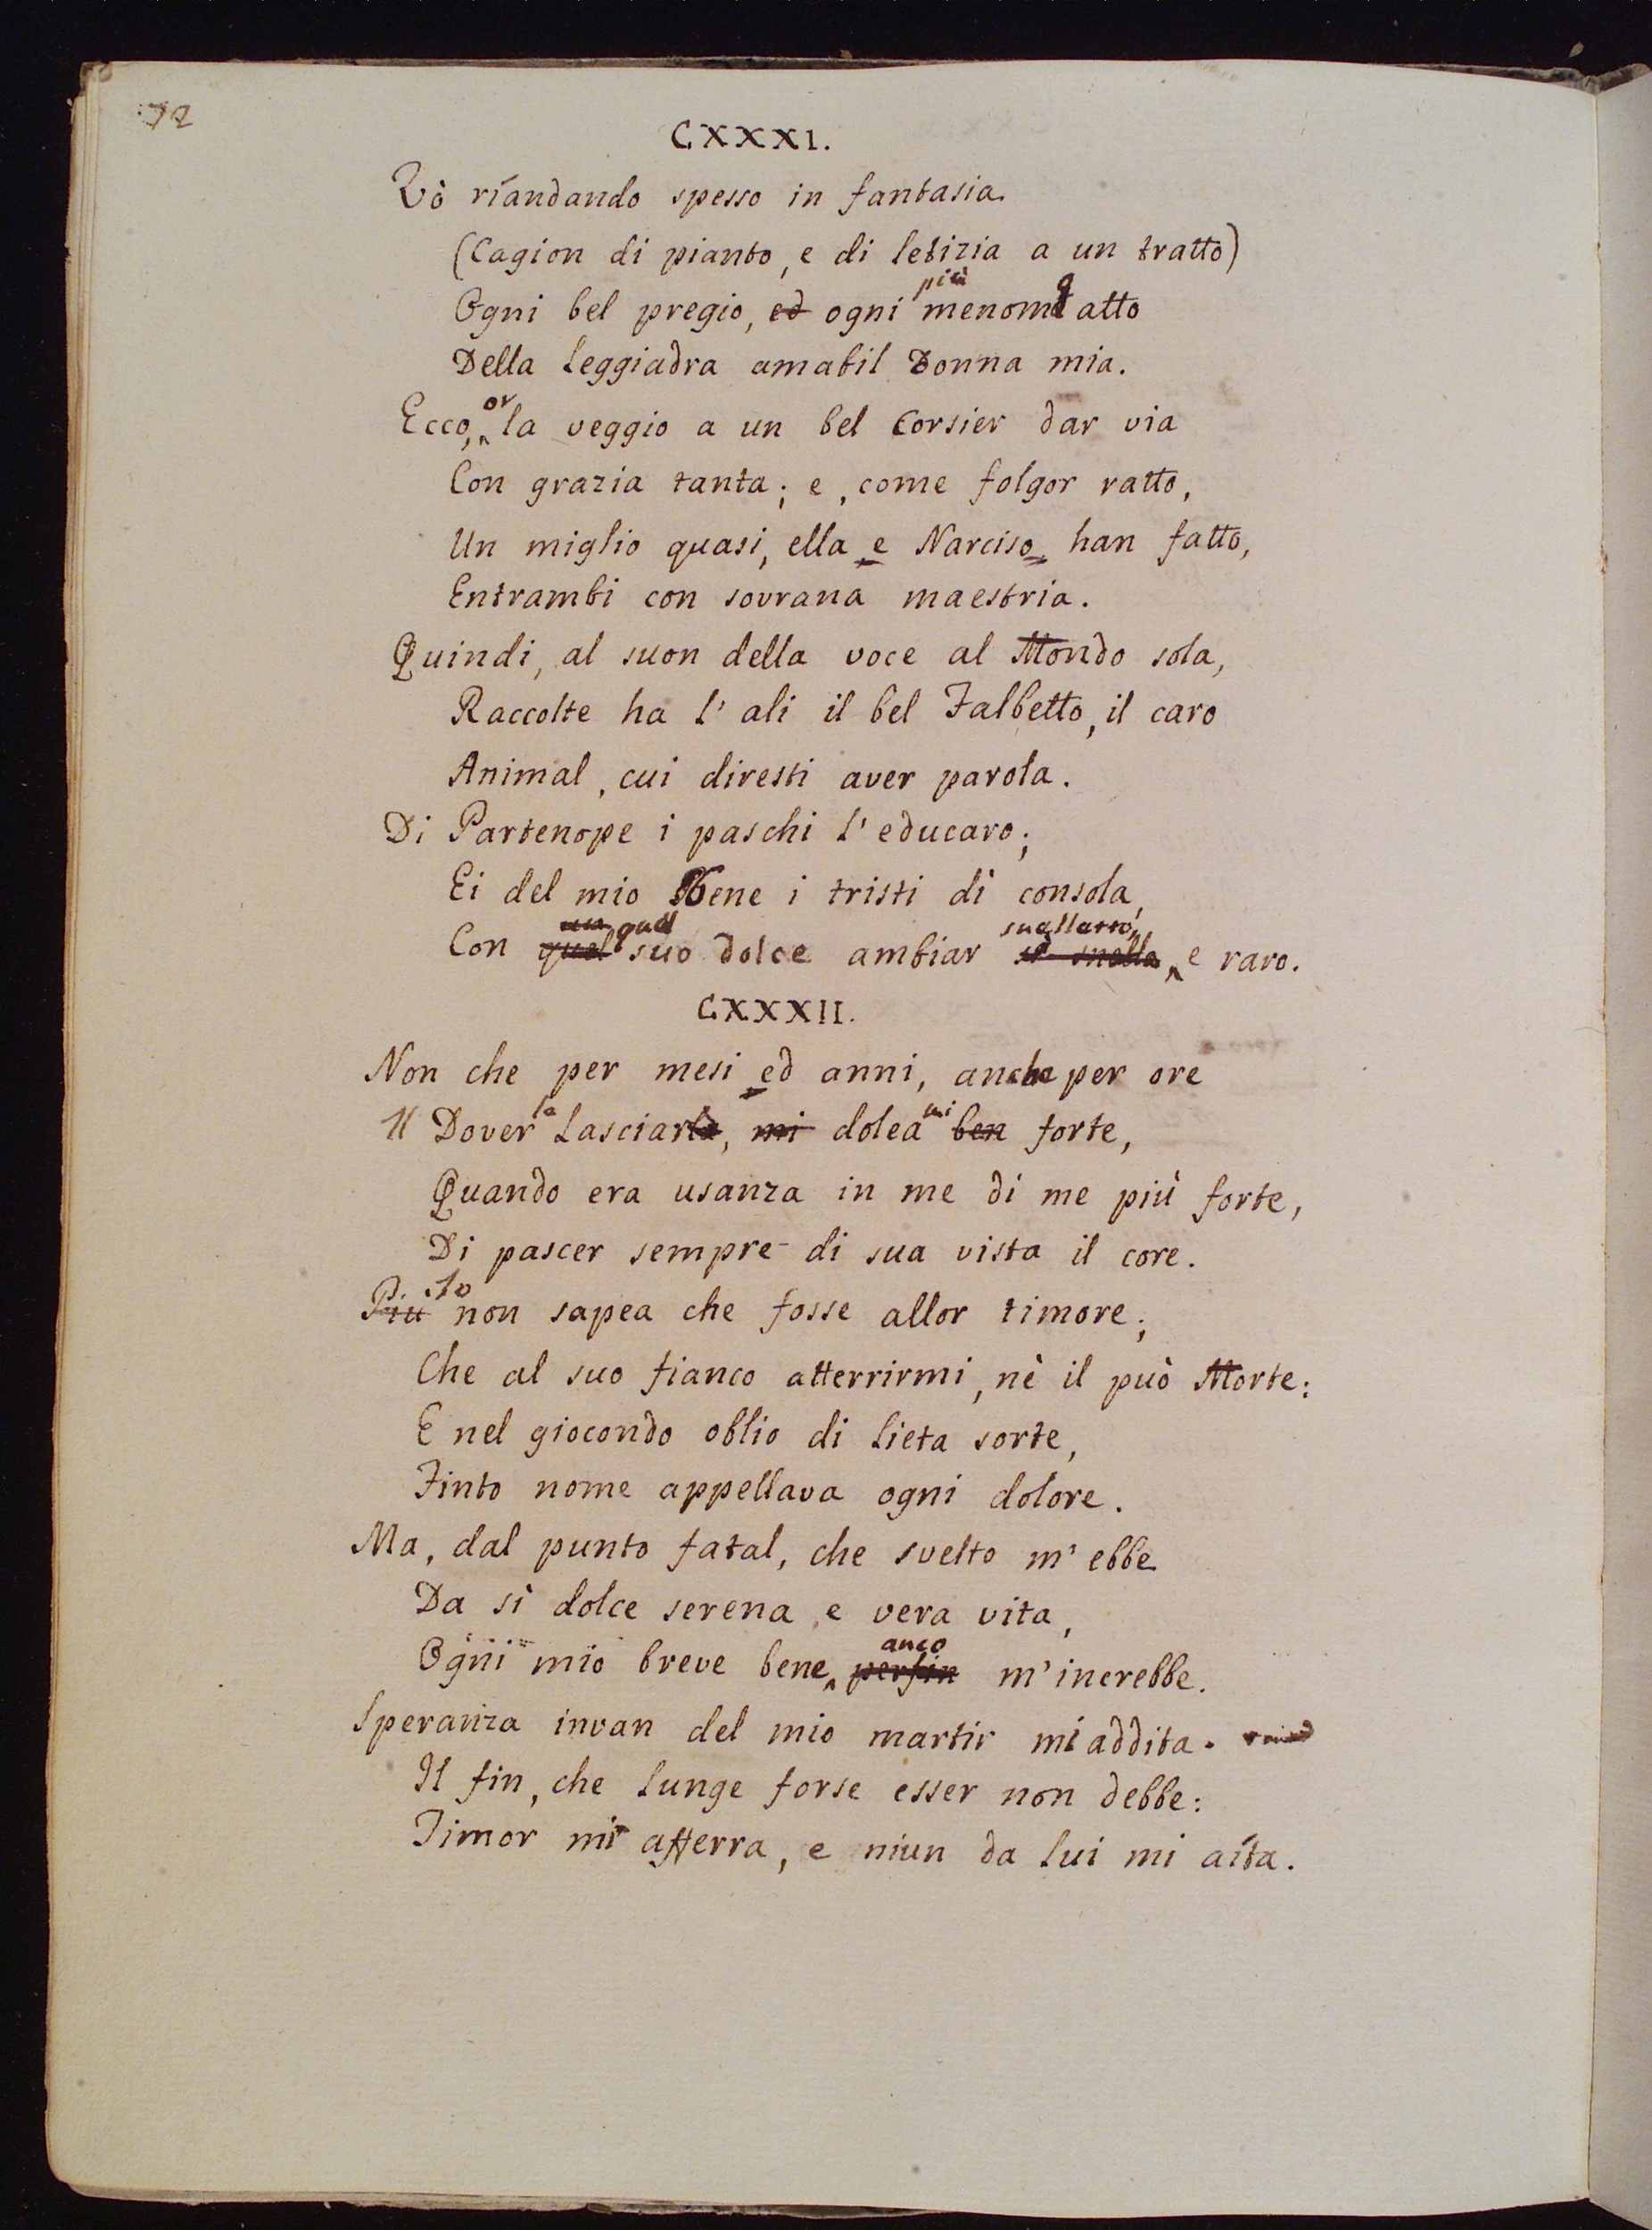 72
CXXXI.
Vò riandando spesso in fantasia
(Cagion di pianto, e di letizia a un tratto)
più
Ogni bel pregio, ed ogni menomo atto
Della leggiadra amabil Donna mia.
or
Ecco, la veggio a un bel Corsier dar via
Con grazia tanta; e, come folgor ratto,
Un miglio quasi, ella e Narciso han fatto,
Entrambi con sovrana maestria.
Quindi, al suon della voce al Mondo sola,
Raccolte ha l'ali il bel Falbetto, il caro
Animal, cui diresti aver parola.
Di Partenope i paschi l'educaro;
Ei del mio Bene i tristi dì consola,
un quel snelletto,
Con quel suo dolce ambiar sì snello, e raro.
CXXXII.
Non che per mesi ed anni, anche per ore
la mi
Il Dover lasciarla, mi dolea ben forte,
Quando era usanza in me di me più forte,
Di pascer sempre di sua vista il core.
Io
Più non sapea che fosse allor timore;
Che al suo fianco atterrirmi, nè il può Morte:
E nel giocondo oblio di lieta sorte,
Finto nome appellava ogni dolore.
Ma, dal punto fatal, che svelto m'ebbe
Da sì dolce serena e vera vita,
anco
Ogni mio breve bene, perfin m'increbbe.
Speranza invan del mio martir mi addita
Il fin, che lunge forse esser non debbe:
Timor mi afferra, e niun da lui mi aita.